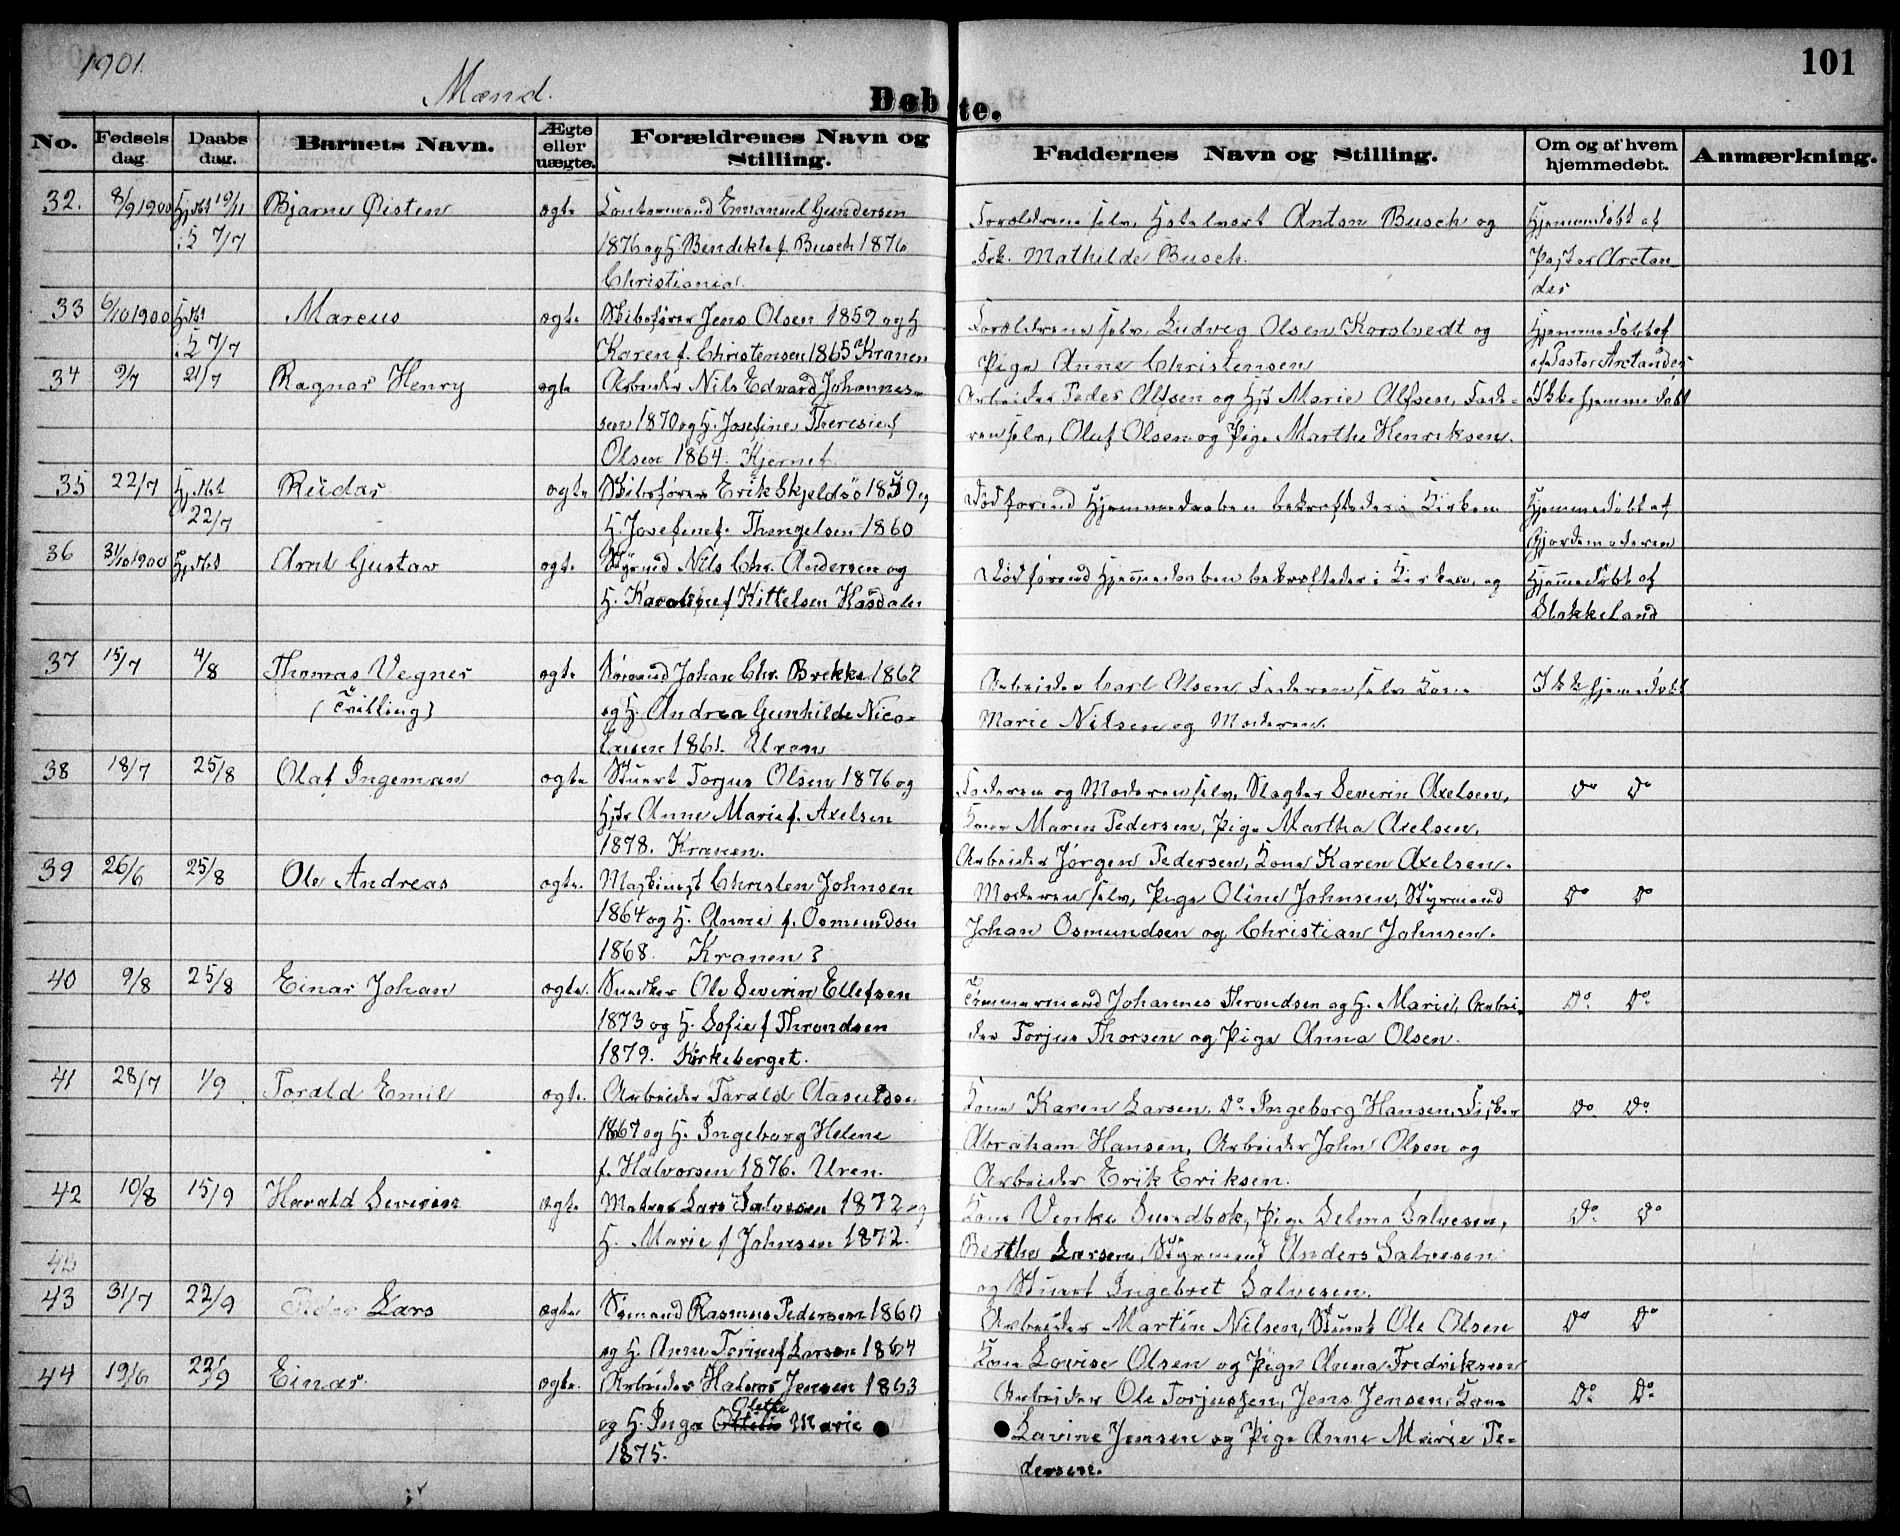 1901.
Mænd.
Døbte.
101
No.
Fødsels dag.
Daabs dag.
Barnets Navn.
Ægte eller uægte.
Forældrenes Navn og Stilling.
Faddernes Navn og Stilling.
Om og af hvem hjemmedøbt.
Anmærkning.
32. 8/9 1900 Hjdbt 10/11 Bjarne Øisten ægte Emanuel Gundersen
i K 7/7 1876 og H. Bendikte f. Busch 1876
Christiania.
Forældrene selv, Hotelvært Anton Busch og
Frk. Mathilde Busch.
Hjemmedøbt af
Pastor Arctan-
der
33 6/10 1900 Hjdbt Marcus ægte Skibsfører Jens Olsen 1859 og H
i K 7/7 Karen f. Christensen 1865 Kranen
Forældrene selv, Ludvig Olsen Korstvedt og
Pige Anne Christensen
Hjemmedøbt af
Pastor Arctander
34 9/7 21/7 Ragnar Henry ægte Arbeider Nils Edvard Johannes-
sen 1870 og H. Josefine Theresie f
Olsen 1864. Kjernet.
Arbeider Peder Alfsen og Hst Marie Alfsen, Fade-
ren selv, Oluf Olsen og Pige Marthe Henriksen.
Ikke hjemmedøbt
35 22/7 Hj.dbt Reidar ægte Skibsfører Erik Skjeldsø 1859 og
22/7 H. Josefine f. Thengelsen 1860
Død forend Hjemmedaaben bekræftedes i Kirken
Hjemmedøbt af
Gjordemoderen
36 31/10 1900 Hj.dbt Arnt Gustav ægte Styrmd Nils Chr. Andersen og
H. Karoline f Kittelsen Hasdalen
Død forend Hjemmedaaben bekræftedes i Kirken, og
Hjemmedøbt af
Stokkeland
37 15/7 4/8 Thomas Vegner ægte Sømand Johan Chr. Brekke 1862
(Tvilling) og H. Andrea Gunhilde Nico-
laisen 1861. Uren
Arbeider Carl Olsen, Faderen selv Kone
Marie Nilsen og Moderen.
Ikke hjemedøbt
38 18/7 25/8 Olaf Ingeman ægte Stuert Torjus Olsen 1876 og
Hstr Anne Marie f. Axelsen
1878. Kranen.
Faderen og Moderen selv, Slagter Severin Axelsen,
Kone Maren Pedersen, Pige Martha Axelsen,
Arbeider Jørgen Pedersen, Kone Karen Axelsen.
Do Do
39 26/6 25/8 Ole Andreas ægte. Maskinist Christen Johnsen
1864 og H. Anne f. Osmundsen
1868. Kranen?
Moderen selv, Pige Oline Johnsen, Styrmand
Johan Osmundsen og Christian Johnsen.
Do Do
40 9/8 25/8 Einar Johan ægte. Snedker Ole Severin Ellefsen
1873 og H. Sofie f Throndsen
1879. Kirkeberget.
Tømmermand Johannes Throndsen og H. Marie, Arbei-
der Torjus Thorsen og Pige Anna Olsen.
Do. Do.
41 28/7 1/9 Torald Emil ægte. Arbeider Tarald Aasulds.
1867 og H. Ingeborg Helene
f. Halvorsen 1876. Uren.
Kone Karen Larsen, Do Ingeborg Hansen, Fisker
Abraham Hansen, Arbeider John Olsen og
Arbeider Erik Eriksen.
Do. Do.
42 10/8 15/9 Harald Severin ægte Matros Lars Salvesen 1872 og
H. Marie f Johnsen 1872.
Kone Venke Sundbok, Pige Selma Salvesen,
Berthe Larsen, Styrmand Anders Salvesen
og Stuert Ingebret Salvesen.
Do. Do
43 31/7 22/9 Lars ægte. Sømand Rasmus Pedersen 1860
og H. Anne Torine f Larsen 1864
Arbeider Martin Nilsen, Stuert Ole Olsen
Kone Lovise Olsen og Pige Anna Fredriksen
Do Do
44 19/6 22/9 Einar ægte. Arbeider Halvor Jensen 1863
Olette
og H. Inga Marie
1875.
Arbeider Ole Torjussen, Jens Jensen, Kone
Lavine Jensen og Pige Anne Marie Pe-
dersen.
Do. Do.